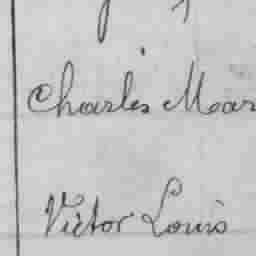 Charles Mar
Victor Louis